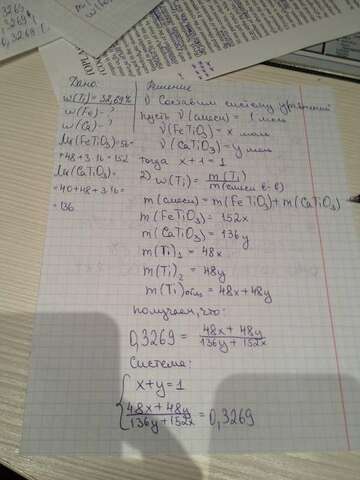 Дано:
w(Ti)=32,69%
w(Fe)-?
w(Ca)-?
M(FeTiO3)=56
+48+3·16=152
M(CaTiO3)=
=40+48+3·16=
=136
Решение
1) Составим систему уравнений
Пусть ν(смеси) = 1 моль
ν(FeTiO3) = x моль
ν(CaTiO3) = y моль
тогда x+y=1
2) w(Ti) = m(Ti) / m(смеси в-в)
m(смеси) = m(FeTiO3)+m(CaTiO3)
m(FeTiO3) = 152x
m(CaTiO3) = 136y
m(Ti)1 = 48x
m(Ti)2 = 48y
m(Ti)общ = 48x+48y
получаем, что:
0,3269 = 48x+48y / 136y+152x
Система:
x+y=1
48x+48y / 136y+152x = 0,3269